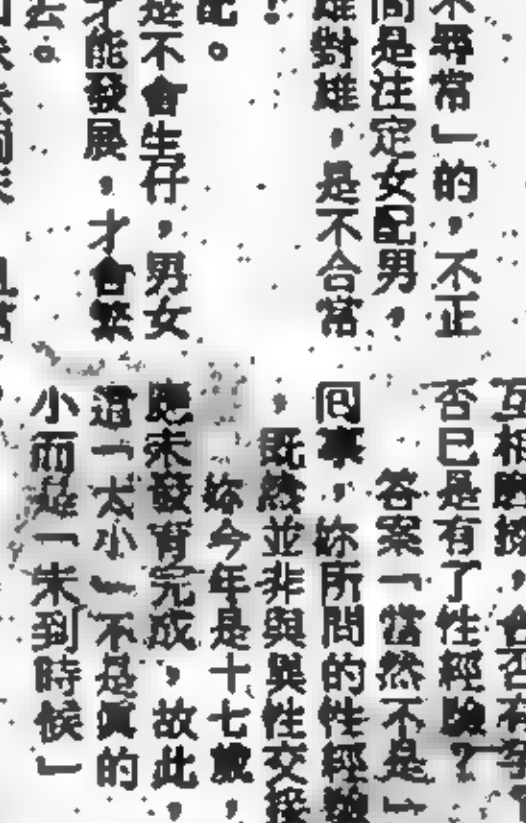 不尋常」的，不正
問是注定女配男，
雄對雄，是不合常
配。
是不會生仔，男女
才能發展，才會繁
去。
互相磨擦，會否有孕
否已是有了性經驗？
答案「當然不是」
回事，妳所問的性經驗
，既然並非與異性交接
妳今年是十七歲，
應未發育完成，故此，
這「太小」不是眞的
小而是「未到時候」